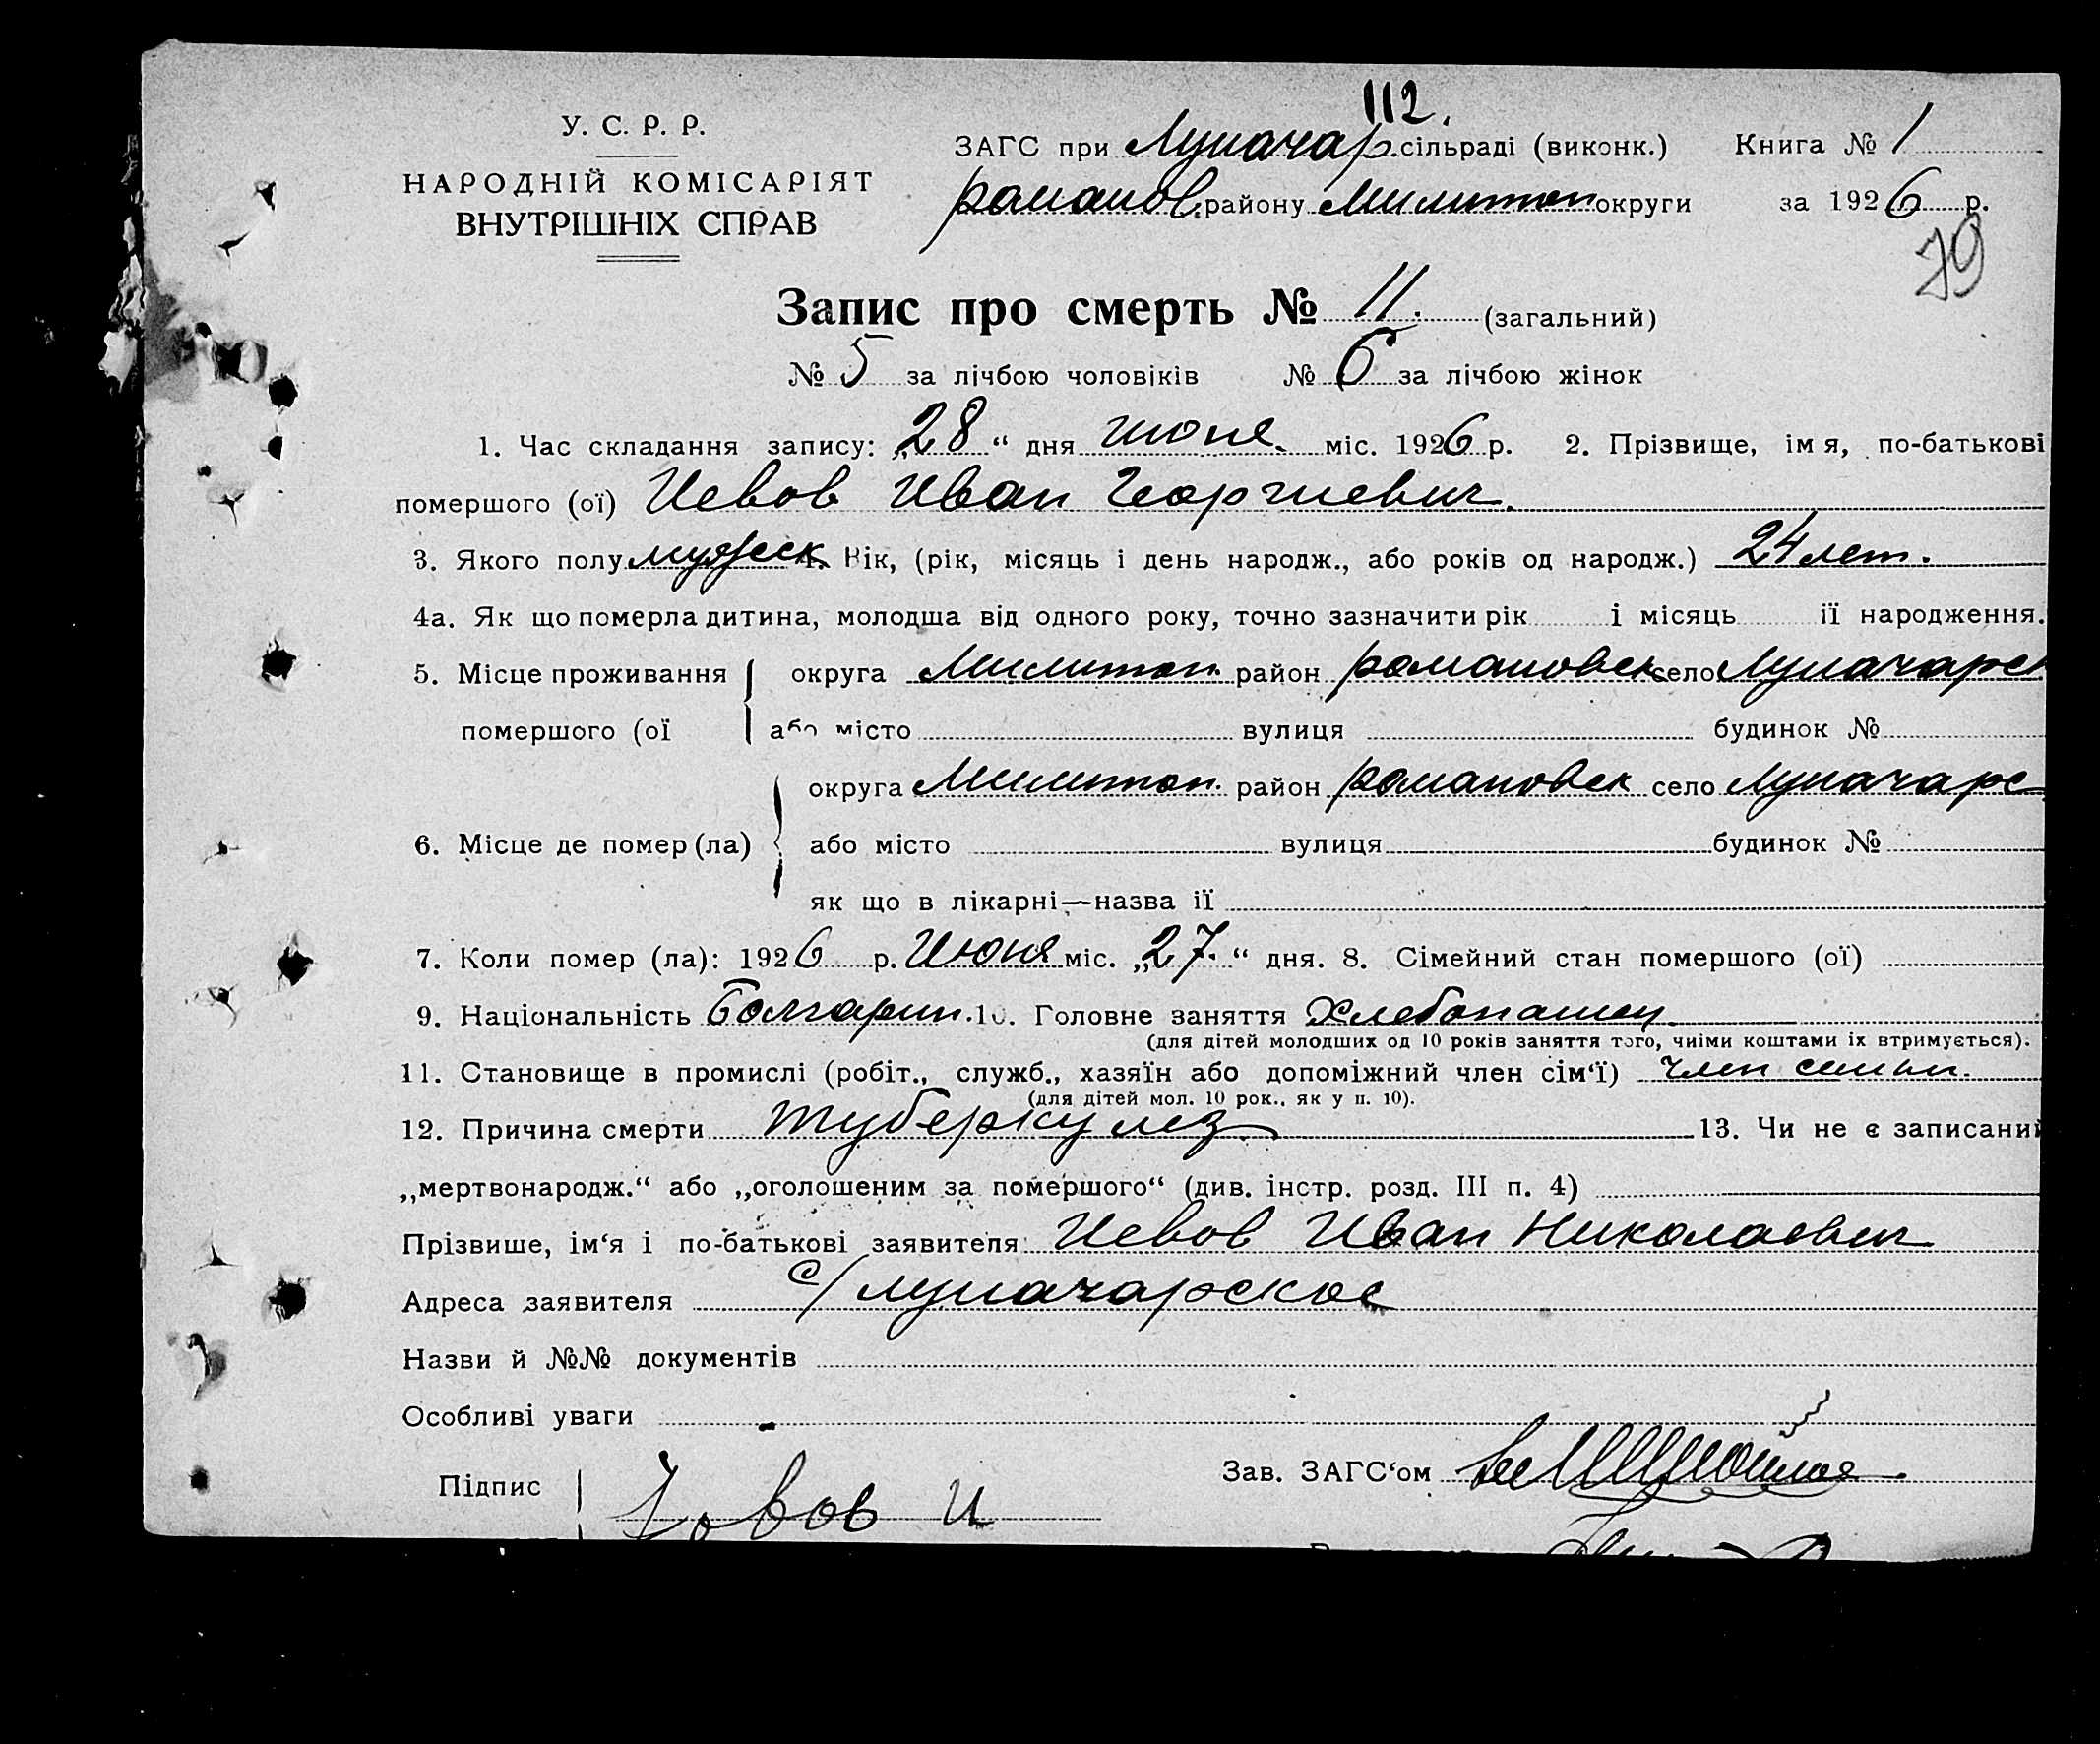 112.
У. С. Р. Р.
ЗАГС при Луначар. сільраді (виконк.) Книга № 1
НАРОДНІЙ КОМІСАРІЯТ
романов. району Милитоп округи за 1926 р.
ВНУТРІШНІХ СПРАВ
79
Запис про смерть № 11. (загальний)
№ 5 за лічбою чоловіків № 6 за лічбою жінок
1. Час складання запису: „28“ дня июня міс. 1926 р. 2. Прізвище, імя, по-батькові
помершого (ої) Иевов Иван Георгиевич.
3. Якого полу мужск 4. Вік, (рік, місяць і день народж., або років од народж.) 24 лет.
4а. Як що померла дитина, молодша від одного року, точно зазначити рік і місяць її народження.
5. Місце проживання округа Милитоп. район романовск село Луначарс
помершого (ої або місто вулиця будинок №
округа Милитоп. район романовск село Луначарс
6. Місце де помер (ла) або місто вулиця будинок №
як що в лікарні—назва її
7. Коли помер (ла): 1926 р. Июня міс. „27.“ дня. 8. Сімейний стан помершого (ої)
9. Національність Болгарин. 10. Головне заняття Хлебопашец
(для дітей молодших од 10 років заняття того, чиїми коштами їх втримується).
11. Становище в промислі (робіт., служб., хазяїн або допоміжний член сім‘ї) член семьи.
(для дітей мол. 10 рок., як у п. 10).
12. Причина смерти туберкулез 13. Чи не є записаний
„мертвонародж.“ або „оголошеним за помершого“ (див. інстр. розд. III п. 4)
Прізвише, ім‘я і по-батькові заявителя: Иевов Иван Николаевич
Адреса заявителя с/ луначарское
Назви й №№ документів
Особливі уваги
Зав. ЗАГС‘ом
Підпис Иовов И